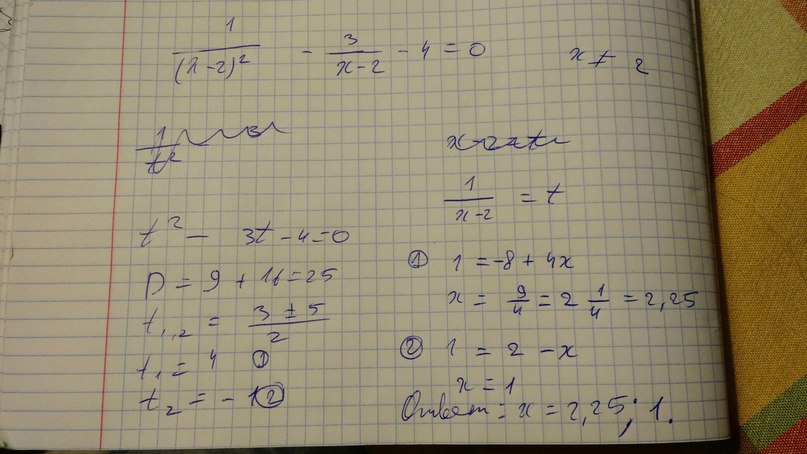 1/(x-2)² - 3/(x-2) - 4 = 0
x ≠ 2
1/(x-2) = t
t² - 3t - 4 = 0
D = 9 + 16 = 25
t₁,₂ = (3 ± 5)/2
t₁ = 4 ①
t₂ = -1 ②
① 1 = -8 + 4x
x = 9/4 = 2 1/4 = 2,25
② 1 = 2 - x
x = 1
Ответ: x = 2,25; 1.